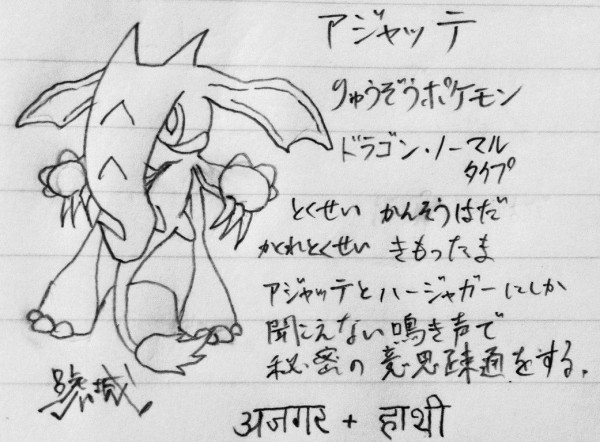 アジャッテ
りゅうぞうポケモン
ドラゴン・ノーマル
タイプ
とくせい かんそうはだ
かくれとくせい きもったま
アジャッテとハージャガーにしか
聞こえない鳴き声で
秘密の意思疎通をする。
अजगर + हाथी